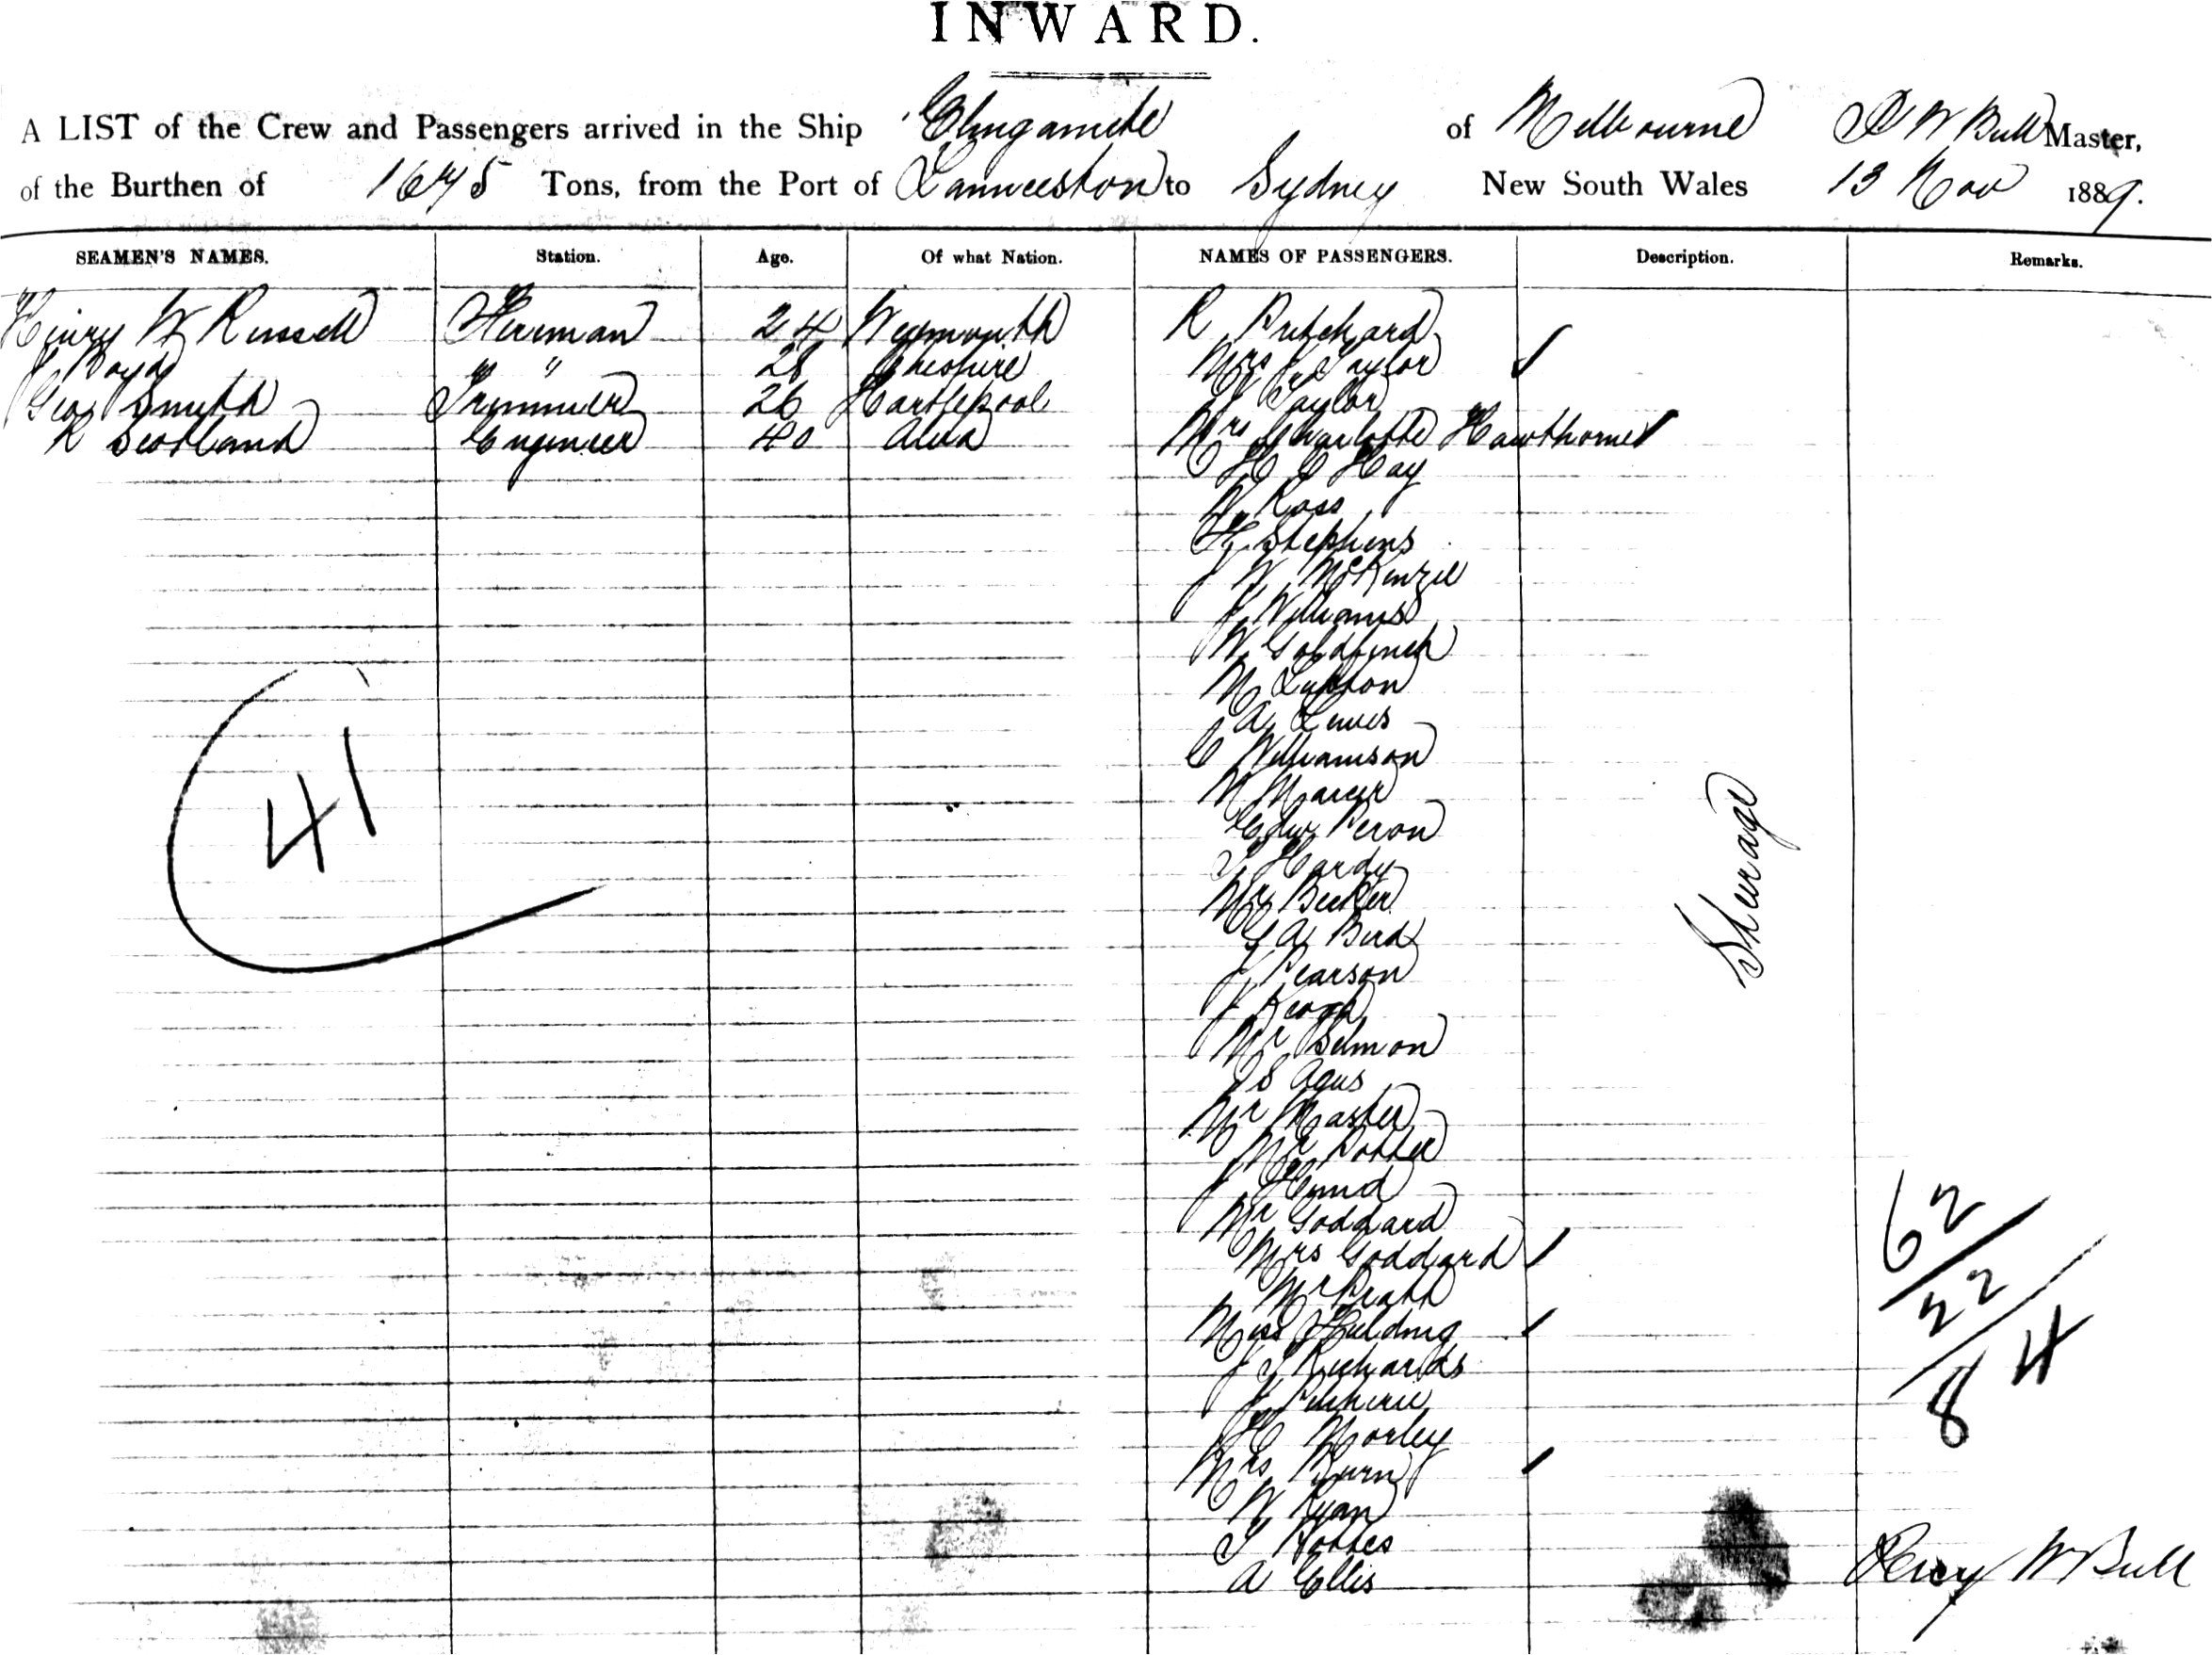 INWARD.
A LIST of the Crew and Passengers arrived in the Ship Elingamite of Melbourne P W Bull Master,
of the Burthen of 1675 Tons, from the Port of Launceston to Sydney New South Wales 13 Nov 1889.
SEAMEN'S NAMES. Station. Age. Of what Nation. NAMES OF PASSENGERS. Description. Remarks.
Henry W Russell Fireman 24 Weymouth R Pritchard
J Boyd " " 28 Cheshire Mrs Taylor
Geo Smith Trimmer 26 Hartlepool Taylor
R Scotland Engineer 40 Alva Mrs Charlotte Hawthorne
H C Hay
Ross
H Stephens
J W McKenzie
J Williams
W Goldfinch
M Lupton
A Lewis
C Williamson
Mercer
Edw Peron
T Hardy
Mr Becker
G A Bird
J Pearson
J Keogh
Mr Selmon
S Agus
Mr Master
Mr Potter
J Hund
Mr Goddard
Mrs Goddard
Mr Pratt
Miss Fielding
J T Richards
J
H Morley
Mrs Burn
W Ryan
T Hobbes
A Ellis
Steerage
41
62
22
84
Percy W Bull